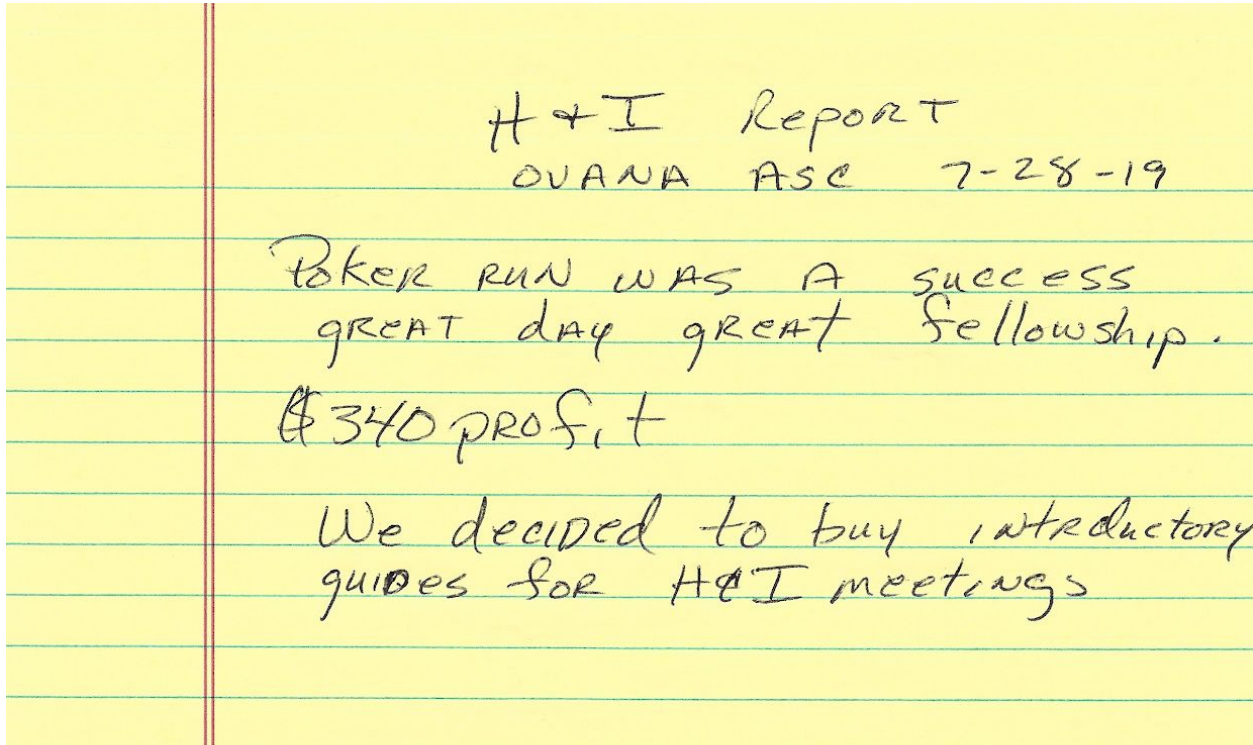 H & I Report
OVANA ASC 7-28-19
Poker run was a success
great day great fellowship.
$340 profit
We decided to buy intreductory
guides for H & I meetings